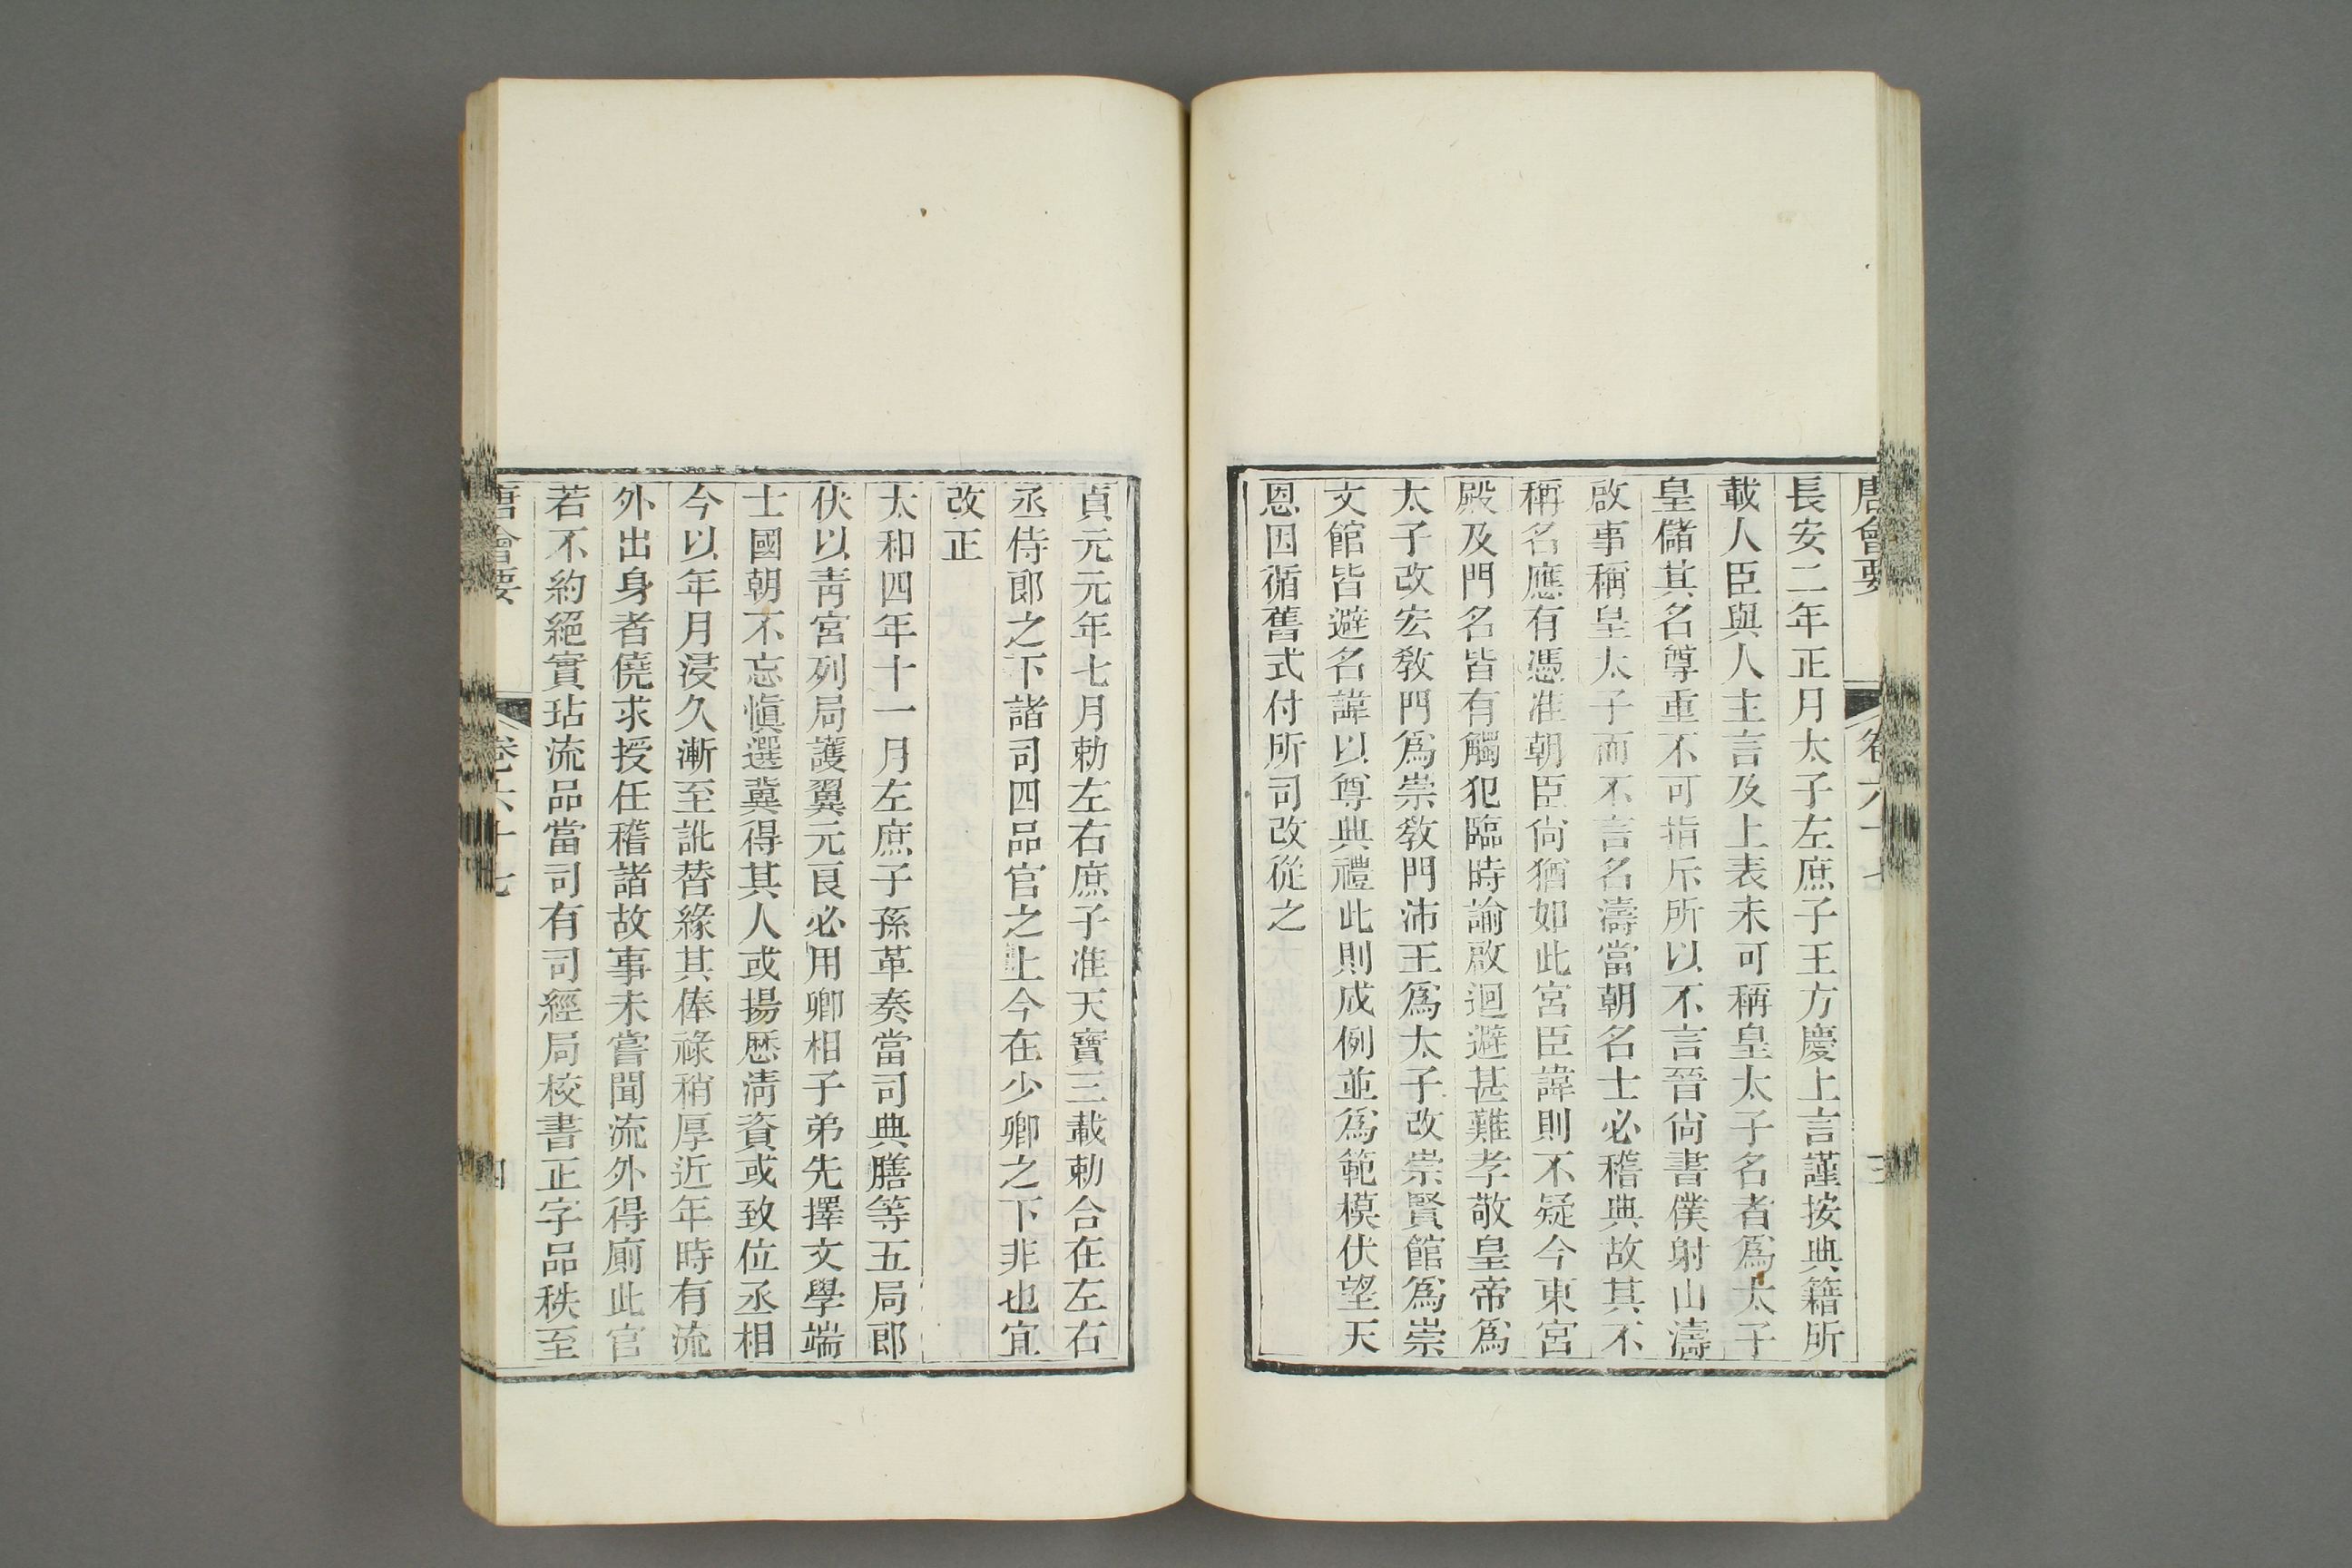 唐會要 卷六十七 三
長安二年正月太子左庶子王方慶上言謹按典籍所
載人臣與人主言及上表未可稱皇太子名者爲太子
皇儲其名尊重不可指斥所以不言晉尙書僕射山濤
啟事稱皇太子而不言名濤當朝名士必稽典故其不
稱名應有憑准朝臣尙猶如此宮臣諱則不疑今東宮
殿及門名皆有觸犯臨時諭啟迴避甚難孝敬皇帝爲
太子改宏敎門爲崇敎門沛王爲太子改崇賢館爲崇
文館皆避名諱以尊典禮此則成例並爲範模伏望天
恩因循舊式付所司改從之
貞元元年七月勅左右庶子准天寶三載勅合在左右
丞侍郞之下諸司四品官之上今在少卿之下非也宜
改正
太和四年十一月左庶子孫革奏當司典膳等五局郞
伏以靑宮列局護翼元良必用卿相子弟先擇文學端
士國朝不忘愼選冀得其人或揚歷淸資或致位丞相
今以年月浸久漸至訛替緣其俸祿稍厚近年時有流
外出身者僥求授任稽諸故事未嘗聞流外得廁此官
若不約絕實玷流品當司有司經局校書正字品秩至
唐會要 卷六十七 四